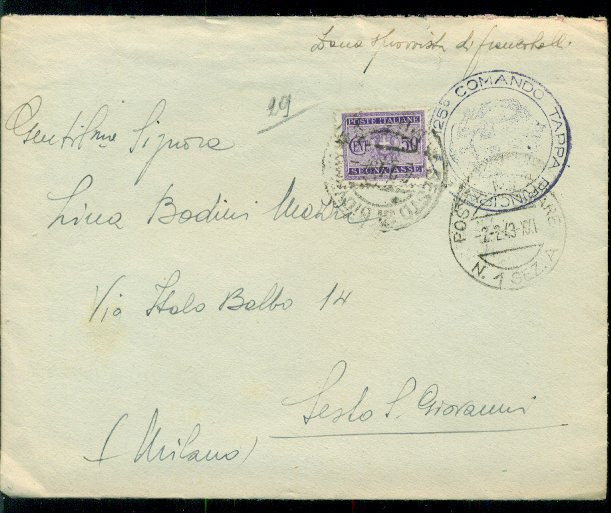 Zona sprovvista di francobolli
29
125° COMANDO TAPPA PRINCIPALE
POSTE ITALIANE
50
SEGNATASSE
SESTO S. GIOV
POSTA MILITARE
-2.2.43-XXI
N. 1 SEZ. A
Gentil.me Signora
Lina Bodini
Via Italo Balbo 14
Sesto S. Giovanni
(Milano)